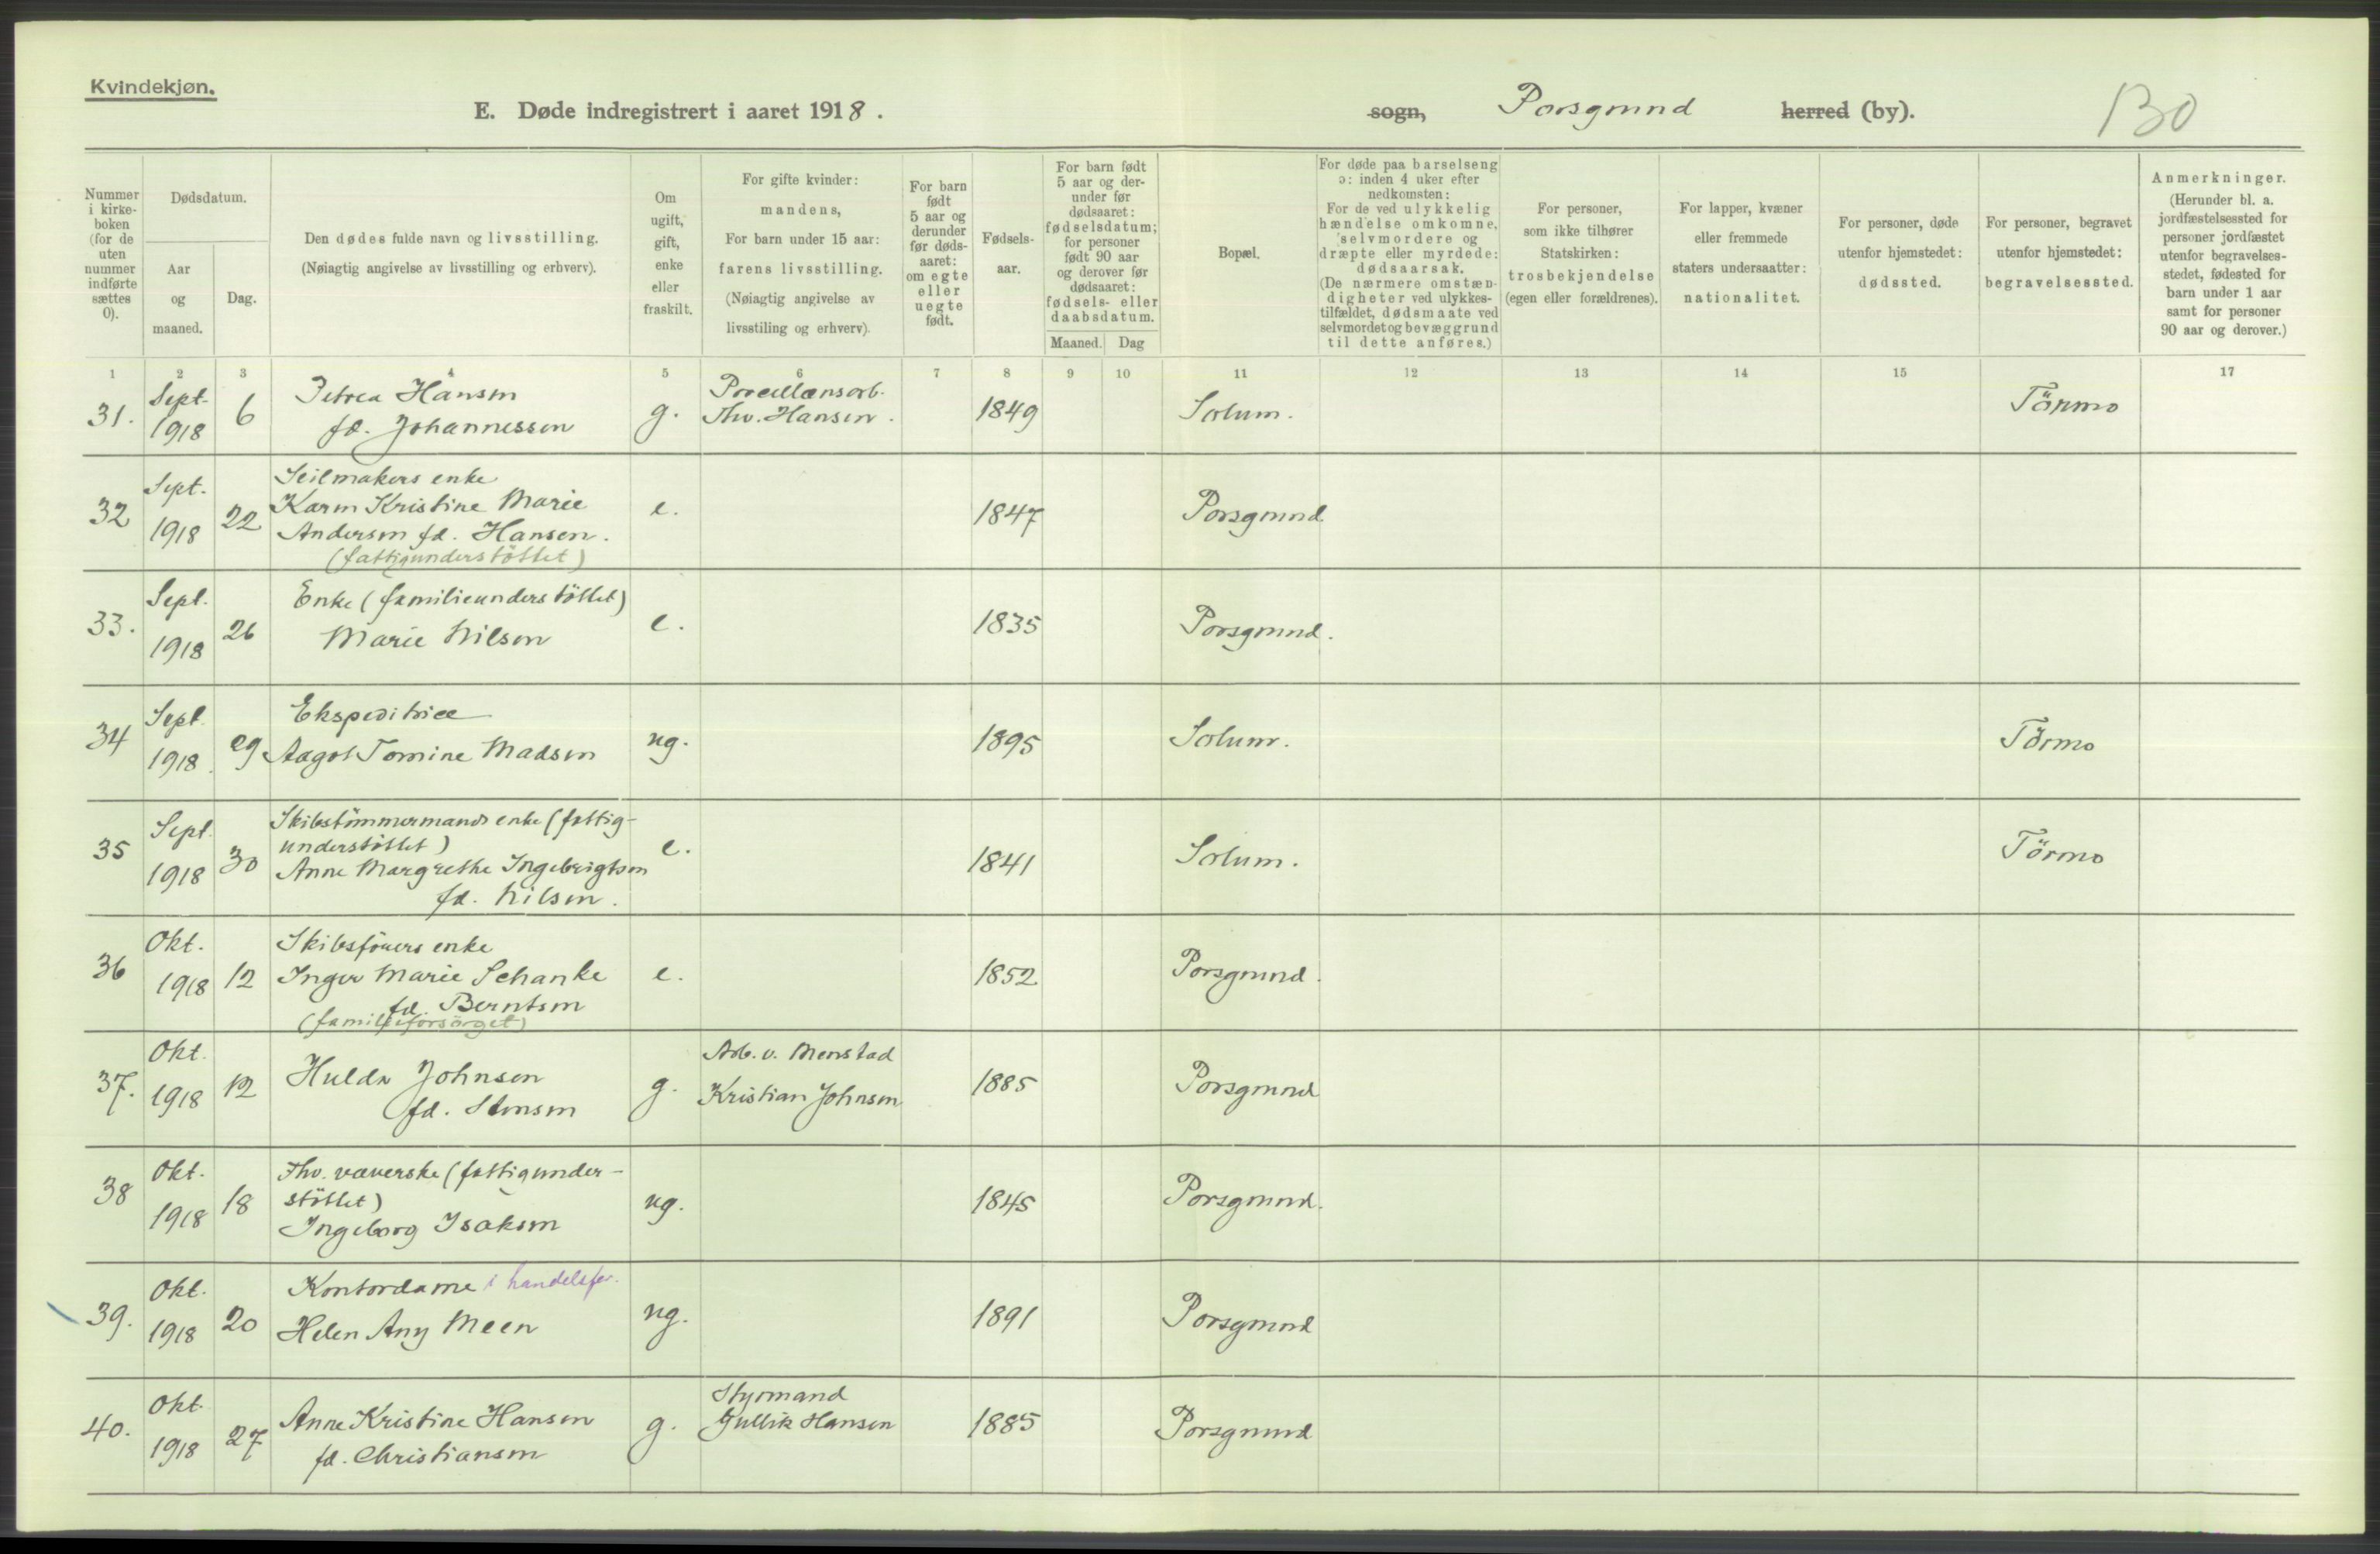 Kvindekjøn.
E. Døde indregistrert i aaret 1918.
sogn, Porsgrund herred (by).
130
Nummer i kirke-boken (for de uten nummer indførte sættes 0).
Dødsdatum.
Aar og maaned.
Dag.
Den dødes fulde navn og livsstilling.
(Nøiagtig angivelse av livsstilling og erhverv).
Om ugift, gift, enke eller fraskilt.
For gifte kvinder: mandens,
For barn under 15 aar: farens livsstilling.
(Nøiagtig angivelse av livsstiling og erhverv).
For barn født 5 aar og derunder før døds-aaret: om egte eller uegte født.
Fødsels-aar.
For barn født 5 aar og der-under før dødsaaret: fødselsdatum; for personer født 90 aar og derover før dødsaaret: fødsels- eller daabsdatum.
Maaned. Dag
Bopæl.
For døde paa barselseng ɔ: inden 4 uker efter nedkomsten:
For de ved ulykkelig hændelse omkomne, selvmordere og dræpte eller myrdede: dødsaarsak.
(De nærmere omstæn-digheter ved ulykkes-tilfældet, dødsmaate ved selvmordet og bevæggrund til dette anføres.)
For personer, som ikke tilhører Statskirken: trosbekjendelse (egen eller forældrenes).
For lapper, kvæner eller fremmede staters undersaatter: nationalitet.
For personer, døde utenfor hjemstedet: dødssted.
For personer, begravet utenfor hjemstedet: begravelsessted.
Anmerkninger.
(Herunder bl. a. jordfæstelsessted for personer jordfæstet utenfor begravelses-stedet, fødested for barn under 1 aar samt for personer 90 aar og derover.)
1 2 3 4 5 6 7 8 9 10 11 12 13 14 15 16 17
31. Sept. 1918 6 Petrea Hansen
fd. Johannessen g. Porcellænsarb.
Thv. Hansen. 1849 Solum. Törmo
32 Sept. 1918 22 Seilmakers enke
Karen Kristine Marie
Andersen fd. Hansen.
(fattigunderstöttet) e. 1847 Porsgrund
33. Sept. 1918 26 Enke (familieunderstöttet)
Marie Nilsen e. 1835 Porsgrund.
34 Sept 1918. 29 Ekspeditrice
Aagot Tomine Madsen ug. 1895 Solum. Törmo
35 Sept. 1918 30 Skibstömmermands enke (fattig-
understöttet)
Anne Margrethe Ingebrigtsen
fd. Nilsen. e. 1841 Solum. Törmo
36 Okt. 1918 12 Skibsförers enke
Inger Marie Schanke
fd. Berntsen
(familieforsörget) e. 1852 Porsgrund.
37. Okt. 1918 12 Hulda Johnsen
fd. Stensen g. Arb. v. Menstad
Kristian Johnsen 1885 Porsgrund
38 Okt. 1918 18 Fhv. væverske (fattigunder-
stöttet)
Ingeborg Isaksen ug. 1845 Porsgrund.
39. Okt. 1918 20 Kontordame i handelsfor.
Helen Any Meen ug. 1891 Porsgrund
40. Okt. 1918 27 Anne Kristine Hansen
fd. Christiansen g. Styrmand
Gullik Hansen 1885 Porsgrund